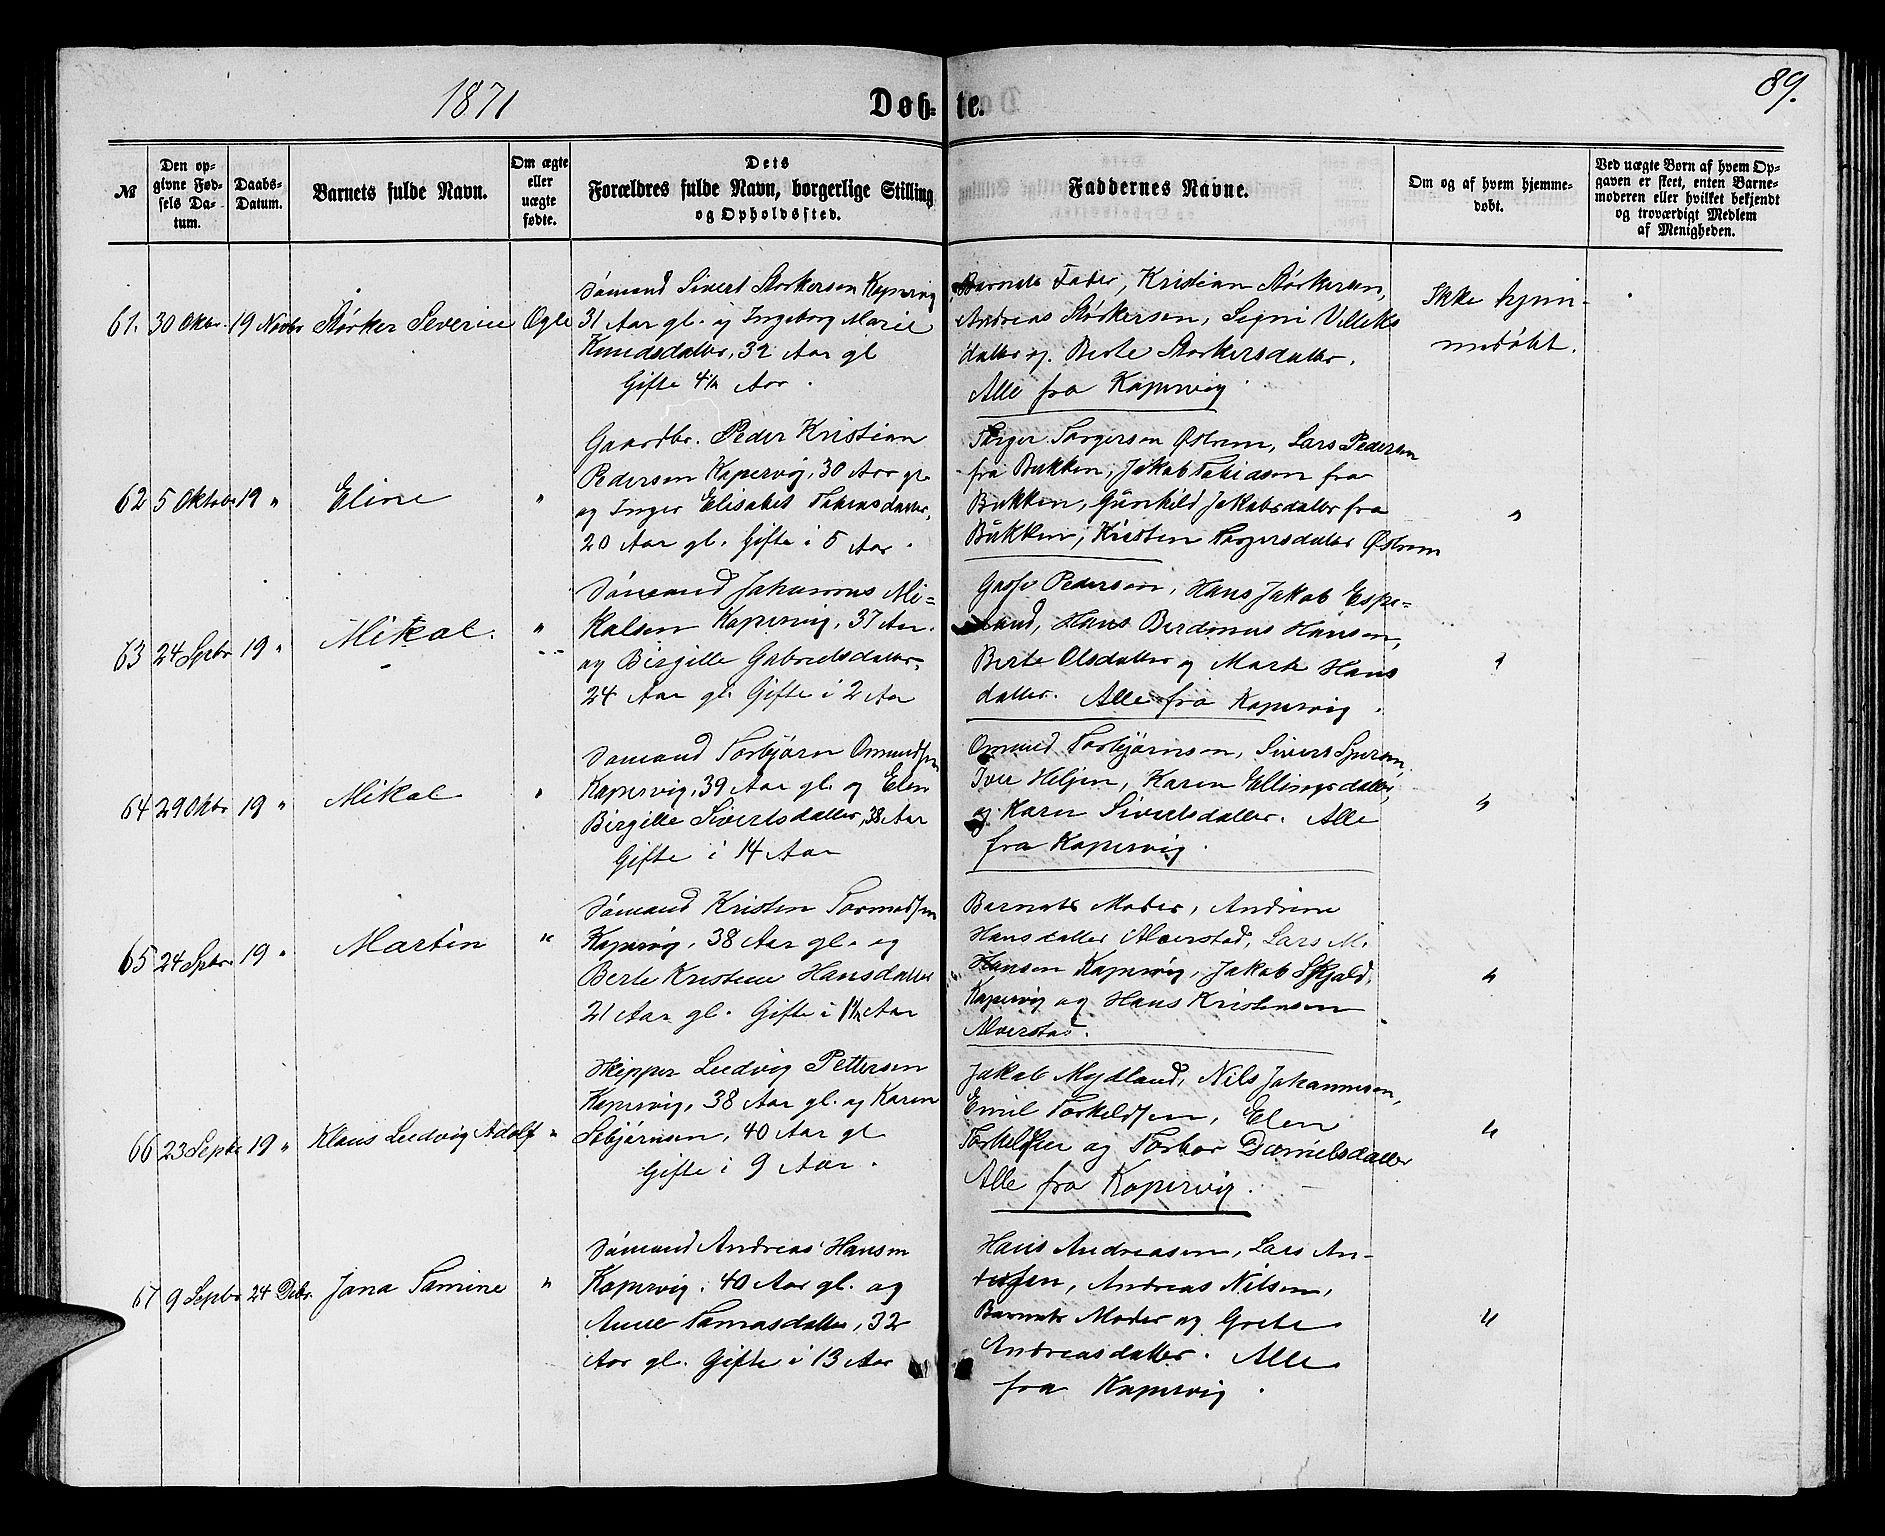 1871
Døb-te.
89.
№
Den op-
givne Fød-
sels Da-
tum.
Daabs-
Datum.
Barnets fulde Navn.
Om ægte
eller
uægte
fødte.
Dets
Forældres fulde Navn, borgerlige Stilling
og Opholdssted.
Faddernes Navne.
Om og af hvem hjemme-
døbt.
Ved uægte Børn af hvem Op-
gaven er skeet, enten Barne-
moderen eller hvilket bekjendt
og troværdigt Medlem
af Menigheden.
61. 30 Oktbr. 19 Novbr Størker Severin Ægte
Sømand Sivert Størkersen Kopervig
31 Aar gl. og Ingeborg Marie
Knudsdatter, 32 Aar gl
Gifte 4½ Aar.
Barnets Fader, Kristian Størkersen,
Andreas Størkersen, Segni Villeks
datter og Berte Størkersdatter.
Alle fra Kopervig
Ikke hjem-
medøbt.
62 5 Oktobr 19 " Eline "
Gaardbr. Peder Kristian
Pedersen Kopervig, 30 Aar gl
og Inger Elisabet
20 Aar gl. Gifte i 5 Aar.
Torger Torgersen Østrem, Lars Pedersen
fra Bukken, Jakob Tobiasen fra
Bukken, Gunhild Jakobsdatter fra
Bukken, Kristen Torgersdatter Østrem
"
63 24 Spbr 19 " Mikal. "
Sømand Johannes Mi-
kalsen Kopervig, 37 Aar.
og Birgitte Gabrielsdatter
24 Aar gl. Gifte i 2 Aar
Pedersen, Hans Jakob Espe-
land, Hans Berdinus Hansen,
Berte Olsdatter og Marta Hans
datter. Alle fra Kopervig.
"
64 29 Okbr 19 " Mikal "
Sømand Torbjørn Omundsen
Kopervig, 39 Aar gl. og Elen
Birgitte Sivertsdatter, 38 Aar
Gifte i 14 Aar
Omund Torbjørnsen, Sivert
Iver Heljen, Karen Ellingsdatter,
og Karen Sivertsdatter. Alle
fra Kopervig.
"
65 24 Spbr. 19 " Martin "
Sømand Kristen Tormodsen
Kopervig, 38 Aar gl. og
Berte Kristine Hansdatter
21 Aar gl. Gifte i 1½ Aar
Barnets Moder, Andrine
Hansdatter Alverstad, Lars M.
Hansen Kopervig, Jakob Skjold,
Kopervig og Hans Kristensen
Alverstad.
"
66 23 Septbr 19 " Klaus Ludvig Adolf "
Skipper Ludvig Pettersen
Kopervig, 38 Aar gl. og Karen
Sebjørnsen, 40 Aar gl
Gifte i 9 Aar.
Jakob Mydland, Nils Johannesen,
Emil Torkeldsen, Elen
Torkeldsen og Torbor Danielsdatter
Alle fra Kopervig.
"
67 9 Septbr 24 Debr. Jana Tamine "
Sømand Andreas Hansen
Kopervig, 40 Aar gl. og
Anne Tamasdatter, 32
Aar gl. Gifte i 13 Aar
Hans Andreasen, Lars An-
dersen, Andreas Nilsen,
Barnets Moder og Grete
Andreasdatter. Alle
fra Kopervig.
"